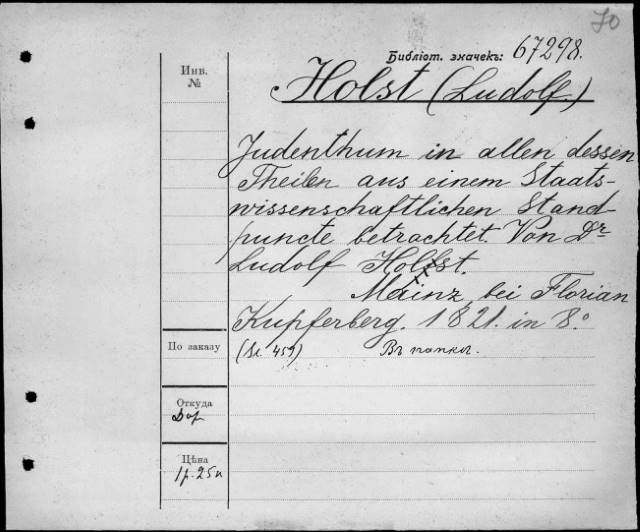 70
Библіот. значекъ: 67298.
Инв.
№
Holst (Ludolf.)
Judenthum in allen dessen
Theilen aus einem Staats-
wissenschaftlichen Stand
puncte betrachtet. Von Dr
Ludolf Holst.
Mainz, bei Florian
Kupferberg. 1821. in 8.º
По заказу
(St. 459) Въ папкѣ.
Откуда
Дар
Цѣна
1 р. 25 к